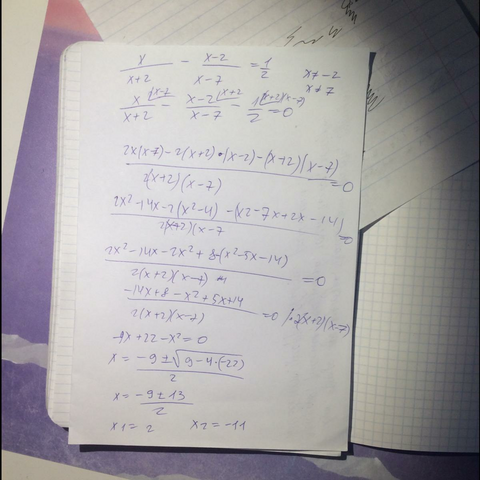 x/(x+2) - (x-2)/(x-7) = 1/2   x≠-2
x≠7
x/(x+2) |x-7 - (x-2)/(x-7) |x+2 - 1/2 |(x+2)(x-7) = 0
(2x(x-7) - 2(x+2)•(x-2) - (x+2)(x-7))/(2(x+2)(x-7)) = 0
(2x²-14x-2(x²-4) - (x2-7x+2x-14))/(2(x+2)(x-7) = 0
(2x²-14x-2x²+8-(x²-5x-14))/(2(x+2)(x-7) = 0
(-14x+8-x²+5x+14)/(2(x+2)(x-7)) = 0 /·2(x+2)(x-7)
-9x+22-x²=0
x = (-9±√(9-4·(-22)))/2
x = (-9±13)/2
x1= 2   x2=-11